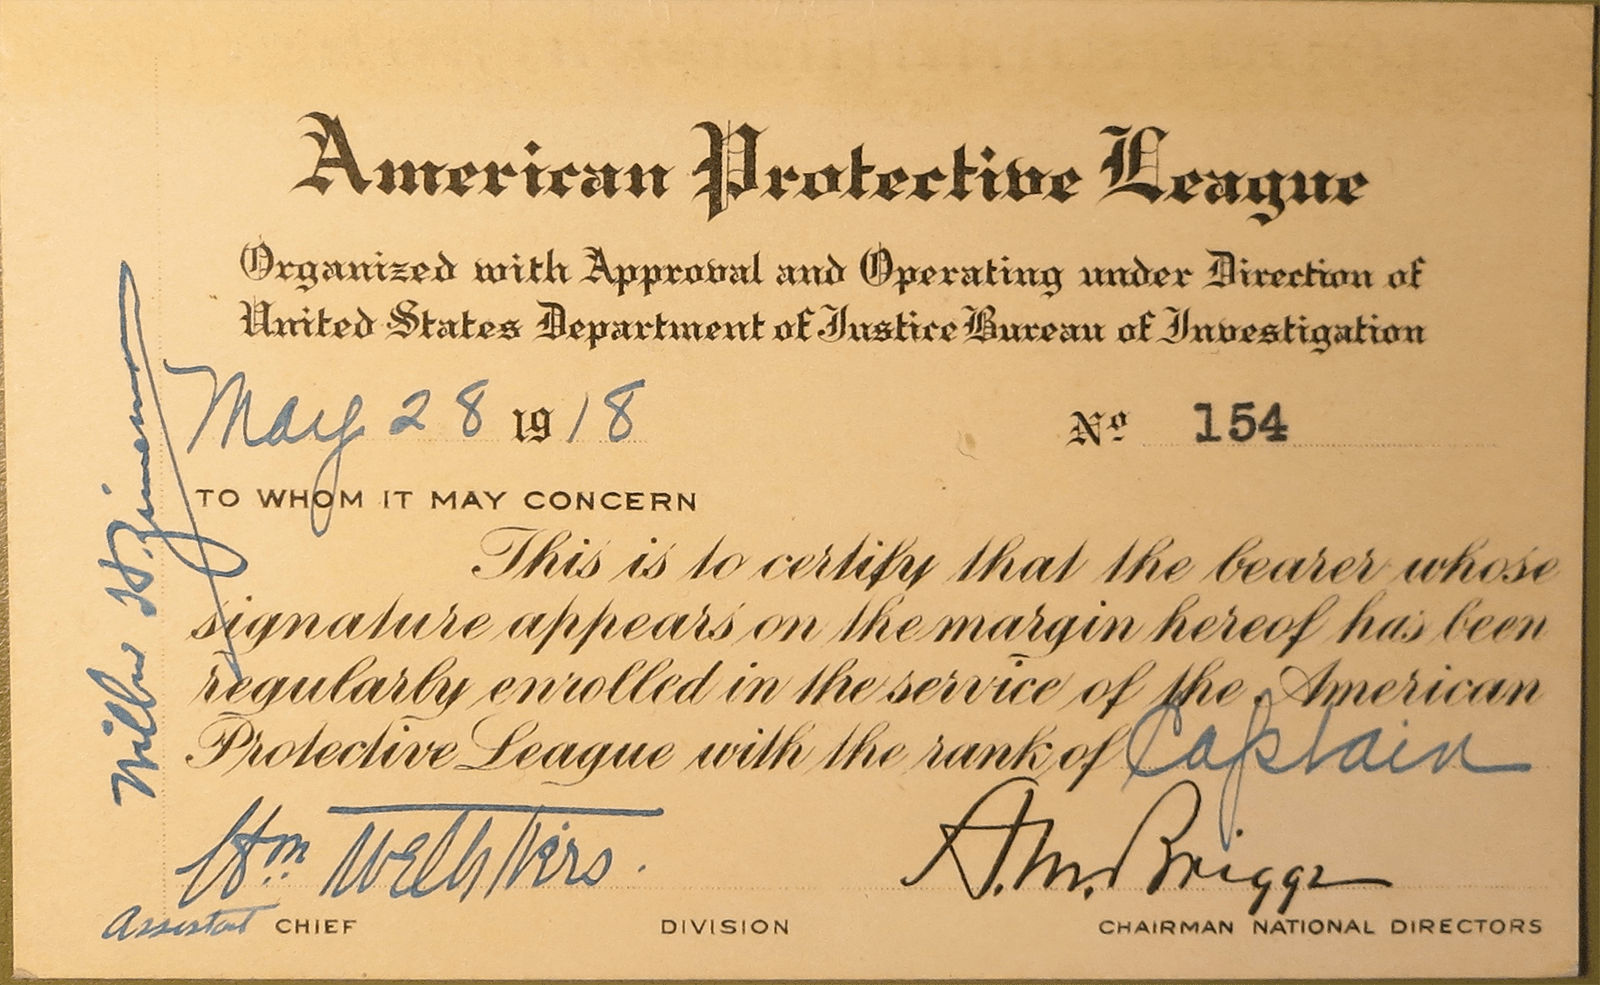 American Protective League
Organized with Approval and Operating under Direction of
United States Department of Justice Bureau of Investigation
May 28 1918 No 154
TO WHOM IT MAY CONCERN
This is to certify that the bearer whose
signature appears on the margin hereof has been
regularly enrolled in the service of the American
Protective League with the rank of Captain
Wm A.M. Briggs
Assistant CHIEF DIVISION CHAIRMAN NATIONAL DIRECTORS
H. Zimmerman